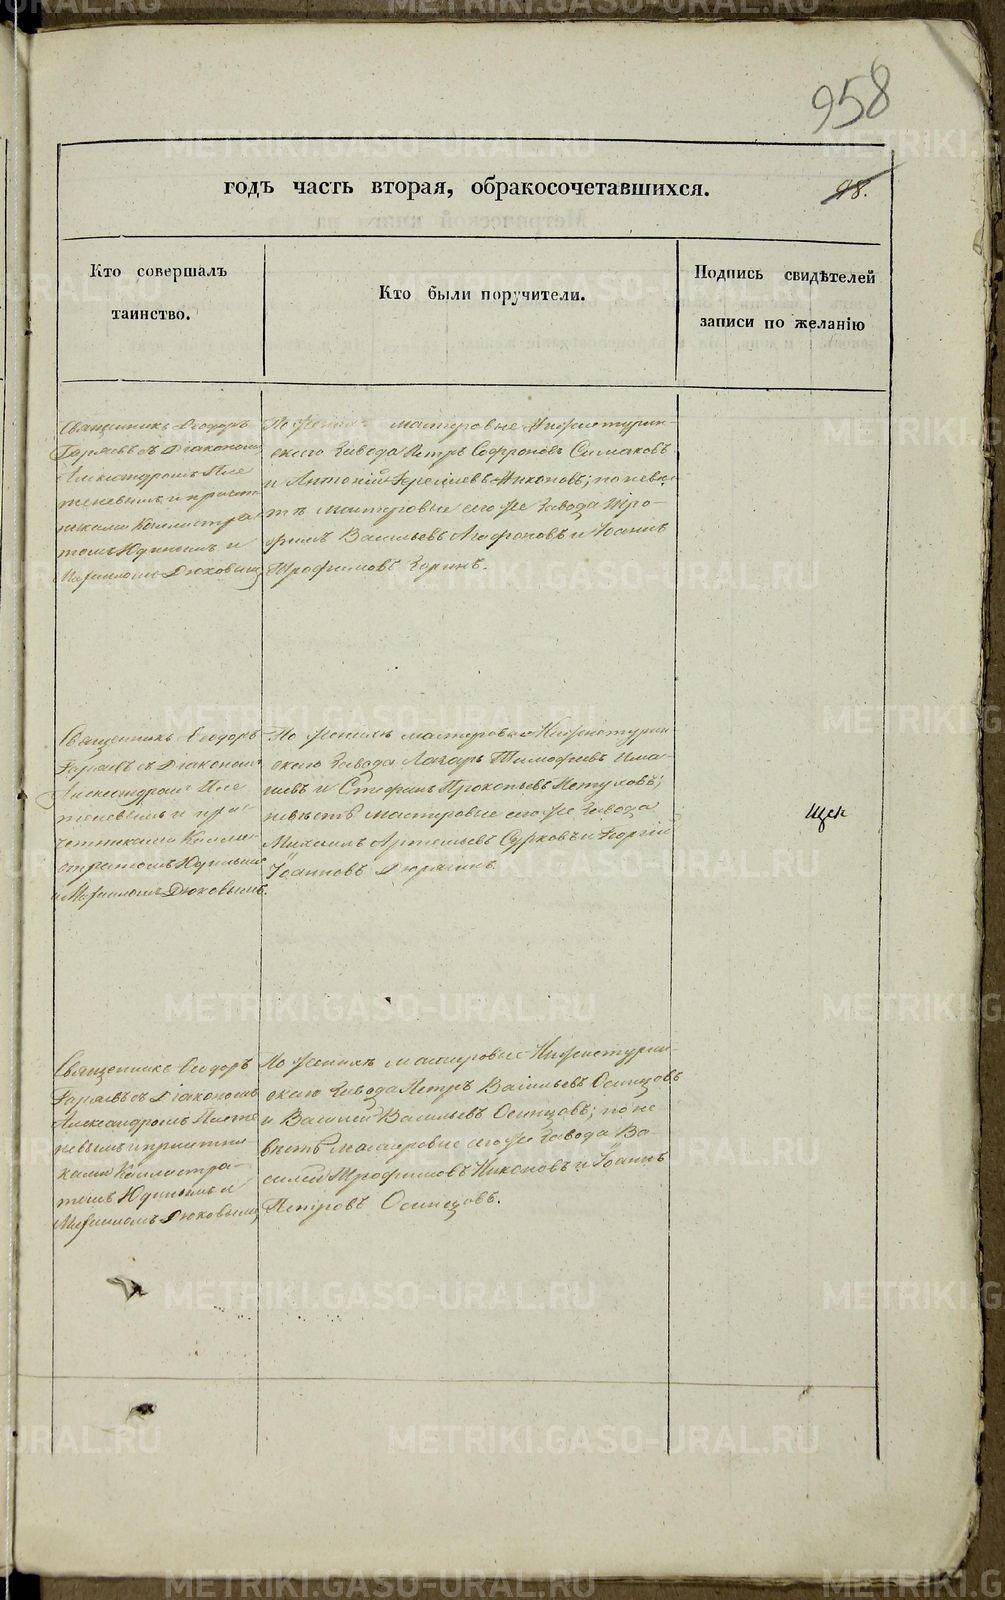 958
годъ часть вторая, обракосочетавшихся.
98.
Кто совершалъ
таинство.
Кто были поручители.
Подпись свидѣтелей
записи по желанію
Священникъ Ѳеодоръ
съ Діакономъ
Александромъ Пле
теневымъ и причет
никами Каллистра
томъ Юдинымъ и
Дюковымъ
По женихѣ мастеровые Нижнетурин-
скаго Завода Петръ Софроновъ Симаковъ
и Антоній Никоновъ; по невѣс
тѣ мастеровые сего же Завода Тро-
фимъ Васильевъ Агафоновъ и Іоаннъ
Трофимовъ Зоринъ.
Священникъ Ѳеодоръ
съ Діакономъ
Александромъ Пле
теневымъ и при-
четниками Калли-
стратомъ Юдинымъ
и Дюковымъ.
По женихѣ мастеровые Нижнетурин
скаго Завода Лазарь Тимофеевъ
и Стефанъ Прокопьевъ Петуховъ;
невѣстѣ мастеровые сего же Завода
Михаилъ Артемьевъ Сурковъ и Георгій
Іоанновъ Дюрягинъ.
Щек
Священникъ Ѳеодоръ
съ Діакономъ
Александромъ Плете
невымъ и причетни
ками Каллистра-
томъ Юдинымъ и
Дюковымъ
По женихѣ мастеровые Нижнетурин-
скаго Завода Петръ Васильевъ Осинцовъ
и Василій Васильевъ Осинцовъ; по не
вѣстѣ мастеровые сего же Завода Ва-
силій Трофимовъ Никоновъ и Іоаннъ
Петровъ Осинцовъ.
METRIKI.GASO-URAL.RU